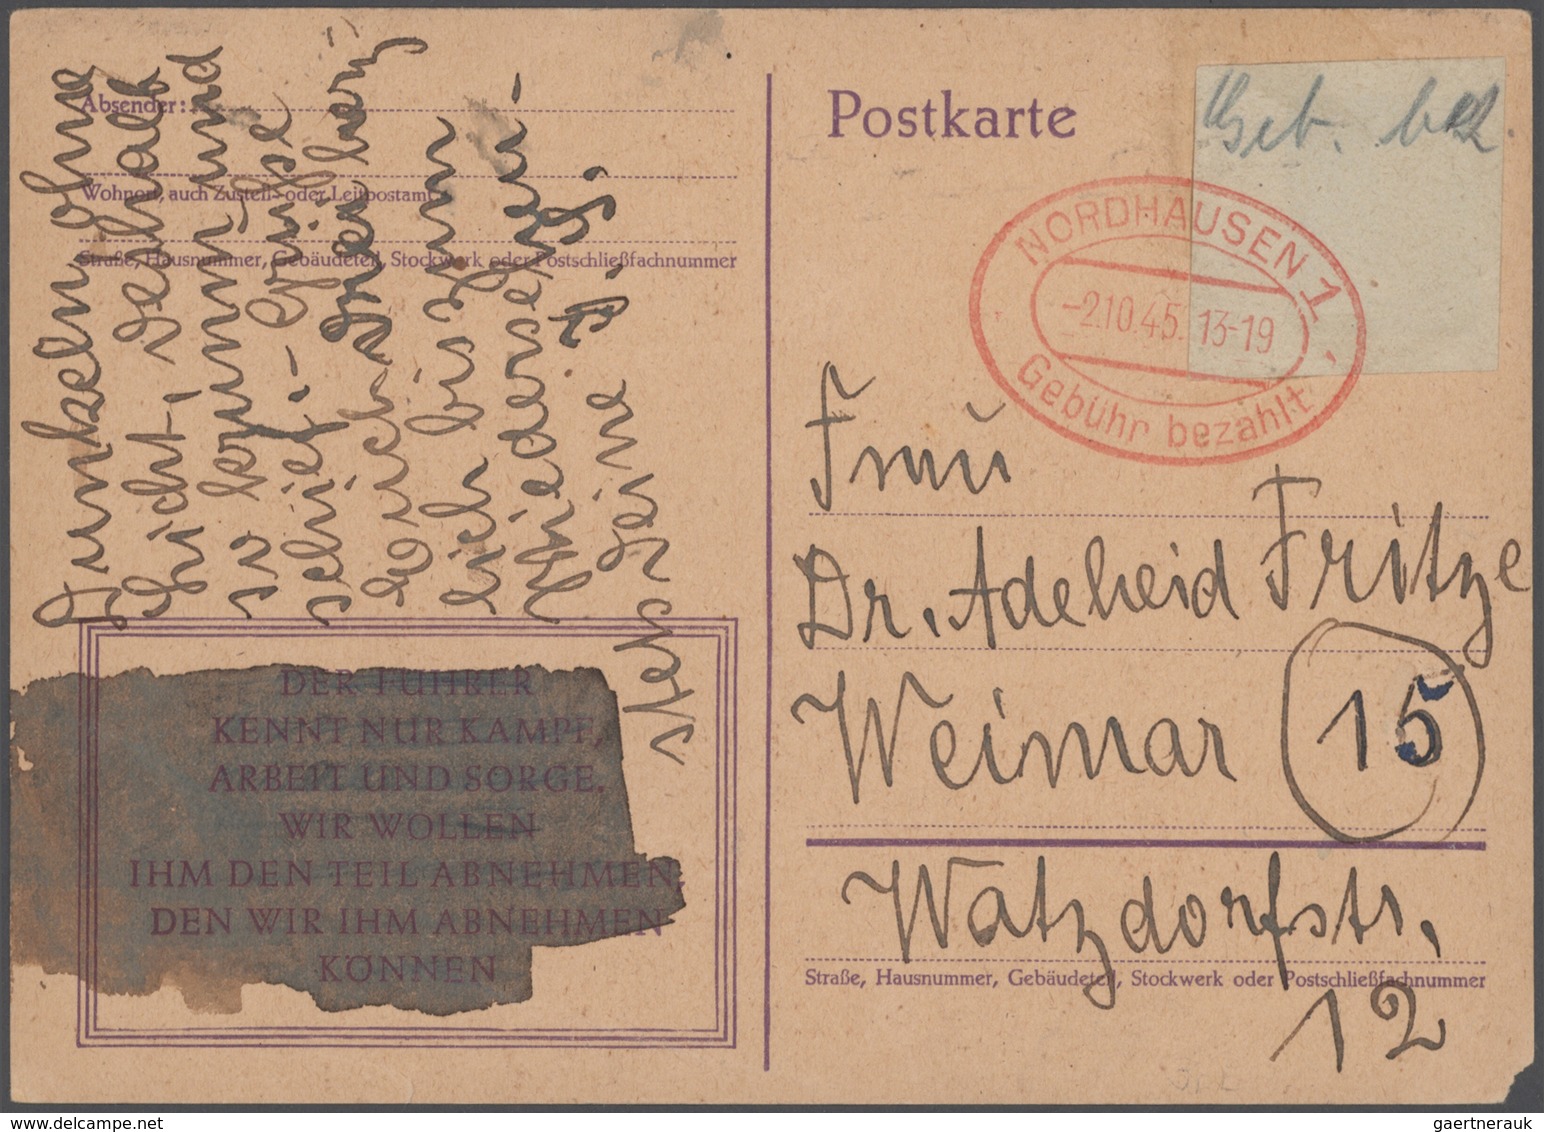 Absender:
Wohnort, auch Zustell- oder Leitpostamt
Straße, Hausnummer, Gebäudeteil, Stockwerk oder Postschließfachnummer
Dunkeln ohne
Licht, deshalb
so krumm und
schief. – Grüße
Euch
bis zum
Wiedersehen –
DER FÜHRER
KENNT NUR KAMPF,
ARBEIT UND SORGE.
WIR WOLLEN
IHM DEN TEIL ABNEHMEN,
DEN WIR IHM ABNEHMEN
KÖNNEN
Postkarte
Geb. bez.
NORDHAUSEN 1
-2.10.45. 13-19
Gebühr bezahlt
Frau
Dr. Adelheid Fritze
Weimar 15
Watzdorfstr.
Straße, Hausnummer, Gebäudeteil, Stockwerk oder Postschließfachnummer
12
gaertnerauk